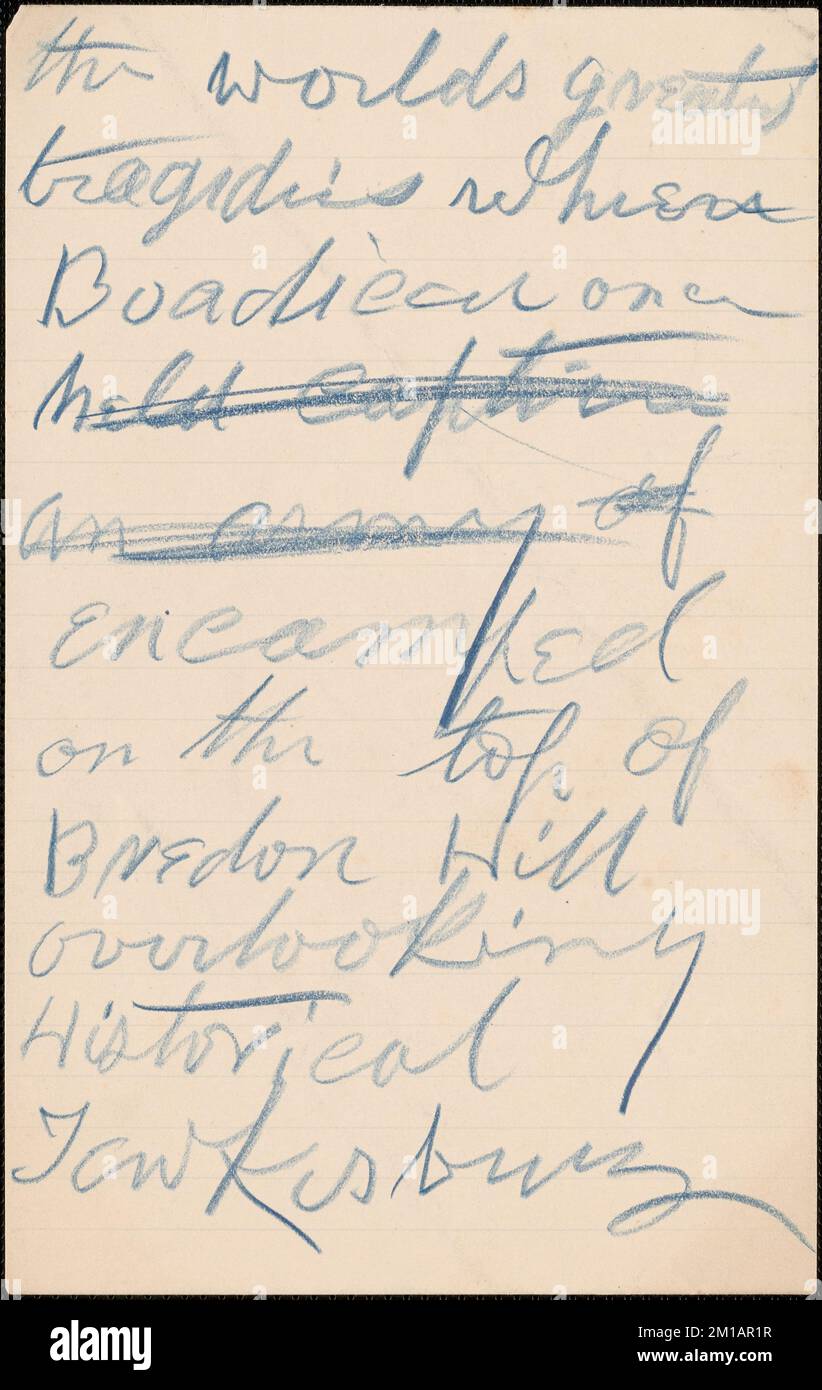 the worlds greatest
tragedies where
Boadicea once
held captive
an army of
encamped
on the top of
Bredon Hill
overlooking
Historical
Tewkesbury
alamy
Image ID: 2M1AR1R
www.alamy.com